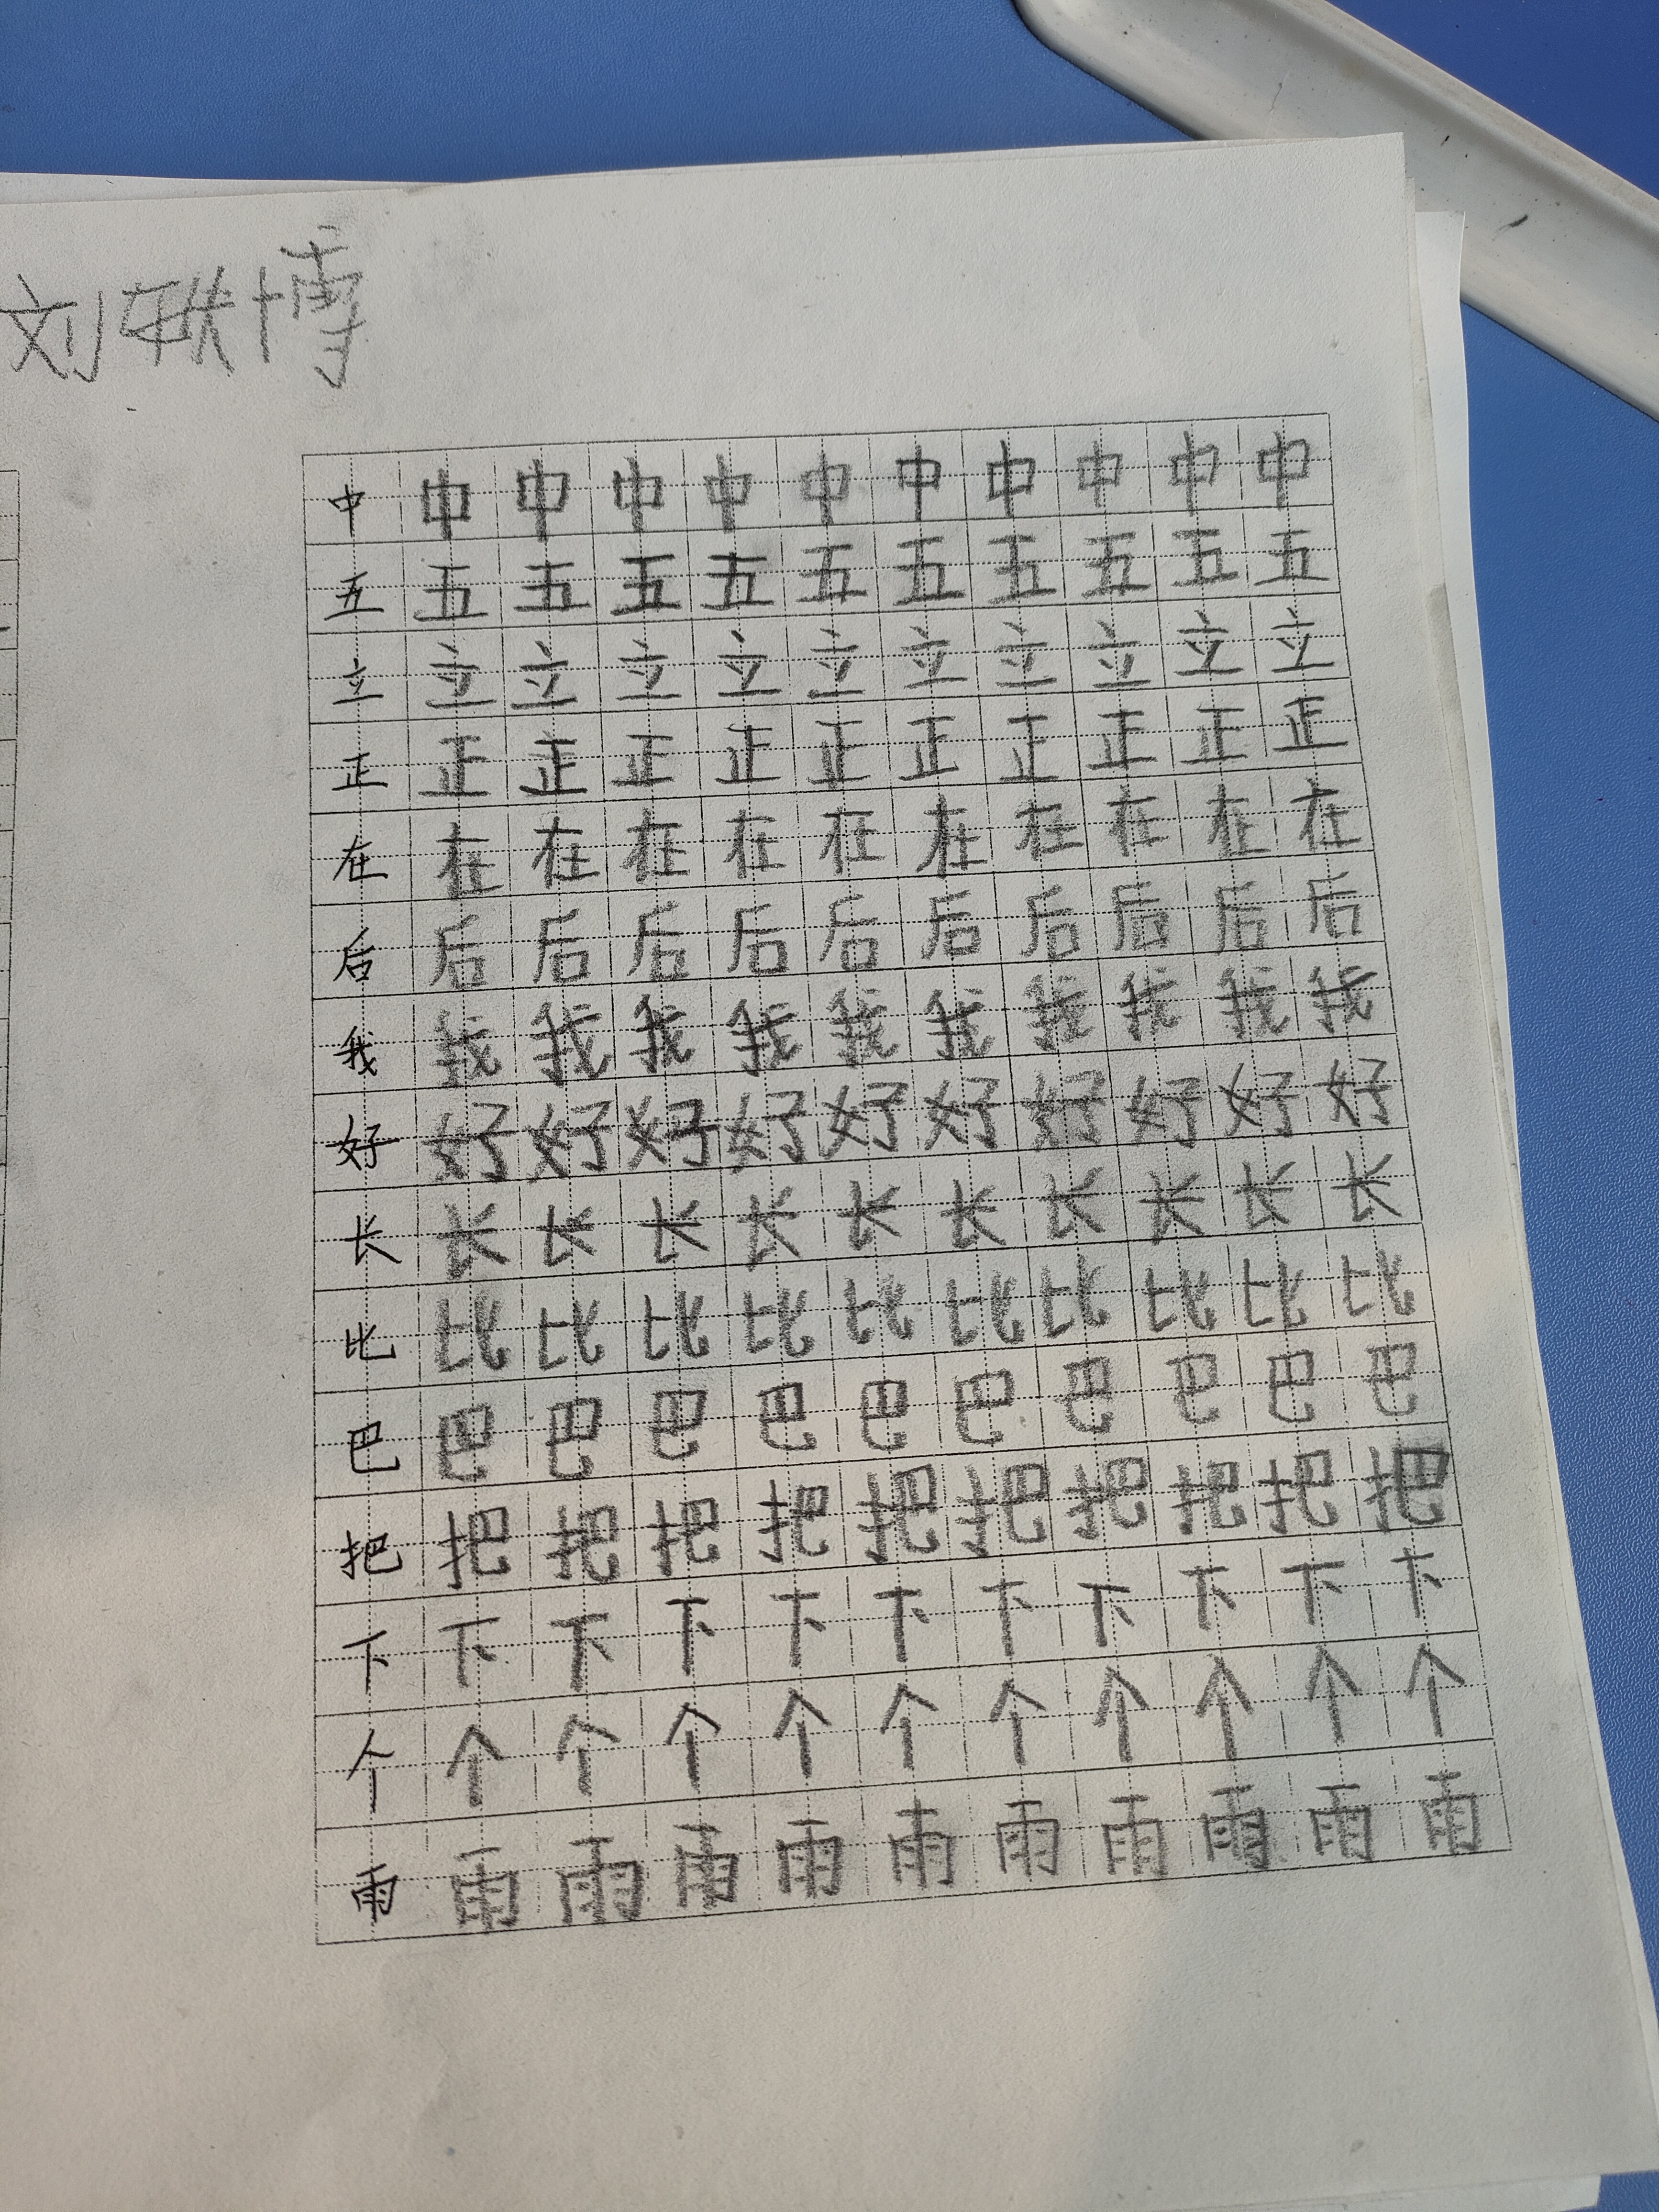 刘联博
中 中 中 中 中 中 中 中 中 中 中
五 五 五 五 五 五 五 五 五 五 五
立 立 立 立 立 立 立 立 立 立 立
正 正 正 正 正 正 正 正 正 正 正
在 在 在 在 在 在 在 在 在 在 在
后 后 后 后 后 后 后 后 后 后 后
我 我 我 我 我 我 我 我 我 我 我
好 好 好 好 好 好 好 好 好 好 好
长 长 长 长 长 长 长 长 长 长 长
比 比 比 比 比 比 比 比 比 比 比
巴 巴 巴 巴 巴 巴 巴 巴 巴 巴 巴
把 把 把 把 把 把 把 把 把 把 把
下 下 下 下 下 下 下 下 下 下 下
个 个 个 个 个 个 个 个 个 个 个
雨 雨 雨 雨 雨 雨 雨 雨 雨 雨 雨